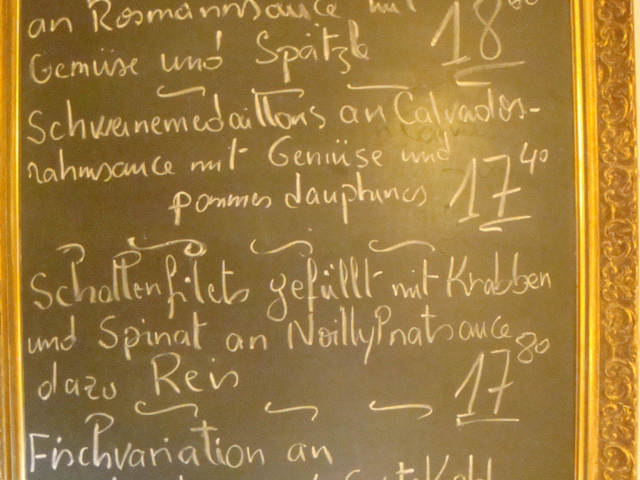 an Rosmarinsauce mit 18
Gemüse und Spätzle
Schweinemedaillons an Calvados-
rahmsauce mit Gemüse und 17 40
pommes dauphines
Schollenfilets gefüllt mit Krabben
und Spinat an NoillyPratsauce 80
dazu Reis 17
Fischvariation an